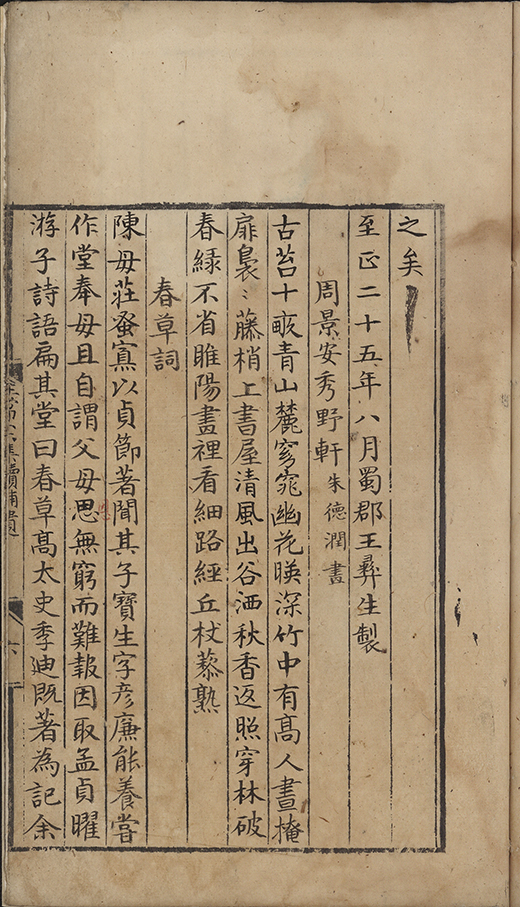 之矣
至正二十五年八月蜀郡王彞生製
周景安秀野軒朱德潤畫
古苔十畞青山麓窈窕幽花暎深竹中有髙人晝掩
扉裊〻藤梢上書屋清風出谷洒秋香返照穿林破
春緑不省睢陽畫裡看細路經丘杖藜熟
春草詞
陳母莊蚤寡以貞節著聞其子寳生字彦廉能養嘗
作堂奉母且自謂父母恩無窮而難報因取孟貞曜
游子詩語扁其堂曰春草髙太史季迪既著為記余
集續補遺
六